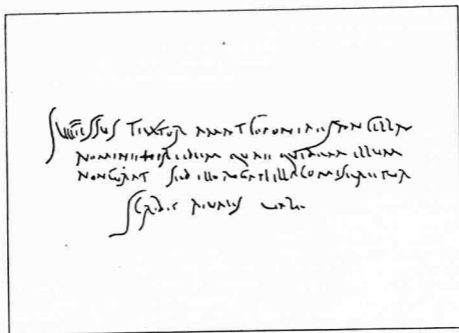 Successus textor amat coponiaes ancilla
nomine Hiredem quae quidem illum
non curat sed ille rogat illa comiseretur
scribit rivalis vale